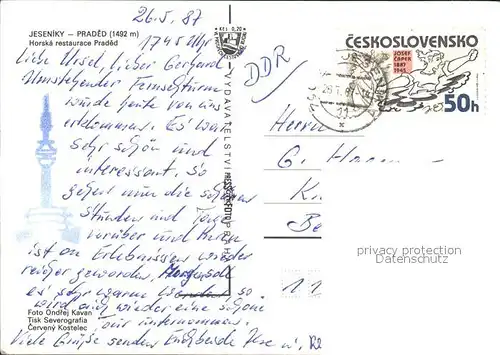 JESENÍKY — PRADĚD (1492 m)
Horská restaurace Praděd
26.5.87
1745 Uhr
Liebe Ursel, Lieber Gerhard
Umstehender Fernsehturm
wurde heute von uns
erklommen. Es war
sehr schön und
interessant. So
gehen nun die schönen
Stunden und Tage
vorüber und
ist an Erlebnissen wieder
reicher geworden. Morgen soll
es sehr warm werden so
wird auch wieder eine schöne
unternommen.
Viele Grüße senden Euch beide Ilse u.
Foto Ondřej Kavan
Tisk Severografia
Červený Kostelec
Kčs 0,70
VYDAVATELSTVÍ
PRAHA
DDR
ČESKOSLOVENSKO
JOSEF
ČAPEK
1887
1945
50h
Herrn
G.
privacy protection
Datenschutz